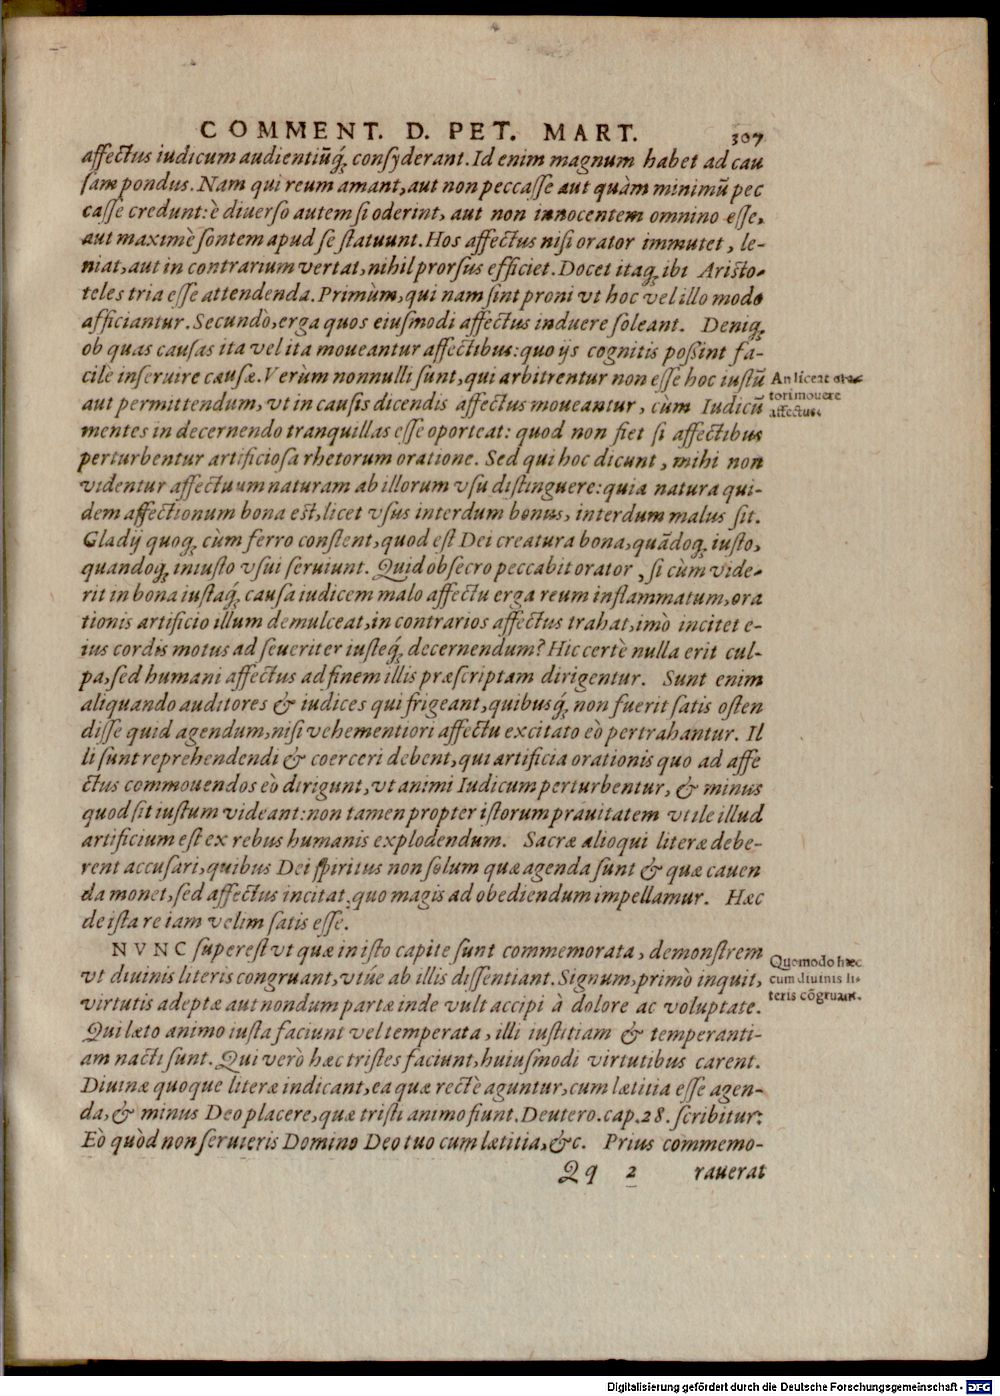 COMMENT. D. PET. MART. 307
affectus iudicum audientiūq́; consyderant. Id enim magnum habet ad cau
sam pondus. Nam qui reum amant, aut non peccasse aut quàm minimū pec
casse credunt: è diuerso autem si oderint, aut non innocentem omnino esse,
aut maximè sontem apud se statuunt. Hos affectus nisi orator immutet, le-
niat, aut in contrarium vertat, nihil prorsus efficiet. Docet itaq; ibi Aristo-
teles tria esse attendenda. Primùm, qui nam sint proni vt hoc vel illo modo
afficiantur. Secundò, erga quos eiusmodi affectus induere soleant. Deniq;
ob quas causas ita vel ita moueantur affectibus: quo ijs cognitis poßint fa-
cile inseruire causæ. Verùm nonnulli sunt, qui arbitrentur non esse hoc iustū
An liceat ora-
tori mouere
affectus.
aut permittendum, vt in causis dicendis affectus moueantur, cùm Iudicū
mentes in decernendo tranquillas esse oporteat: quod non fiet si affectibus
perturbentur artificiosa rhetorum oratione. Sed qui hoc dicunt, mihi non
videntur affectuum naturam ab illorum vsu distinguere: quia natura qui-
dem affectionum bona est, licet vsus interdum bonus, interdum malus sit.
Gladij quoq; cùm ferro constent, quod est Dei creatura bona, quādoq; iusto,
quandoq; iniusto vsui seruiunt. Quid obsecro peccabit orator, si cùm vide-
rit in bona iustaq́; causa iudicem malo affectu erga reum inflammatum, ora
tionis artificio illum demulceat, in contrarios affectus trahat, imò incitet e-
ius cordis motus ad seueriter iusteq́; decernendum? Hic certè nulla erit cul-
pa, sed humani affectus ad finem illis præscriptam dirigentur. Sunt enim
aliquando auditores & iudices qui frigeant, quibusq́; non fuerit satis osten
disse quid agendum, nisi vehementiori affectu excitato eò pertrahantur. Il
li sunt reprehendendi & coerceri debent, qui artificia orationis quo ad affe
ctus commouendos eò dirigunt, vt animi Iudicum perturbentur, & minus
quod sit iustum videant: non tamen propter istorum prauitatem vtile illud
artificium est ex rebus humanis explodendum. Sacræ alioqui literæ debe-
rent accusari, quibus Dei spiritus non solum quæ agenda sunt & quæ cauen
da monet, sed affectus incitat, quo magis ad obediendum impellamur. Hæc
de ista re iam velim satis esse.
NVNC superest vt quæ in isto capite sunt commemorata, demonstrem
Quomodo hæc
cum diuinis li-
teris cōgruant.
vt diuinis literis congruant, vtúe ab illis dissentiant. Signum, primò inquit,
virtutis adeptæ aut nondum partæ inde vult accipi à dolore ac voluptate.
Qui læto animo iusta faciunt vel temperata, illi iustitiam & temperanti-
am nacti sunt. Qui verò hæc tristes faciunt, huiusmodi virtutibus carent.
Diuinæ quoque literæ indicant, ea quæ rectè aguntur, cum lætitia esse agen-
da, & minus Deo placere, quæ tristi animo fiunt. Deutero. cap. 28. scribitur:
Eò quòd non serueris Domino Deo tuo cum lætitia, &c. Prius commemo-
Qq 2 rauerat
Digitalisierung gefördert durch die Deutsche Forschungsgemeinschaft - DFG